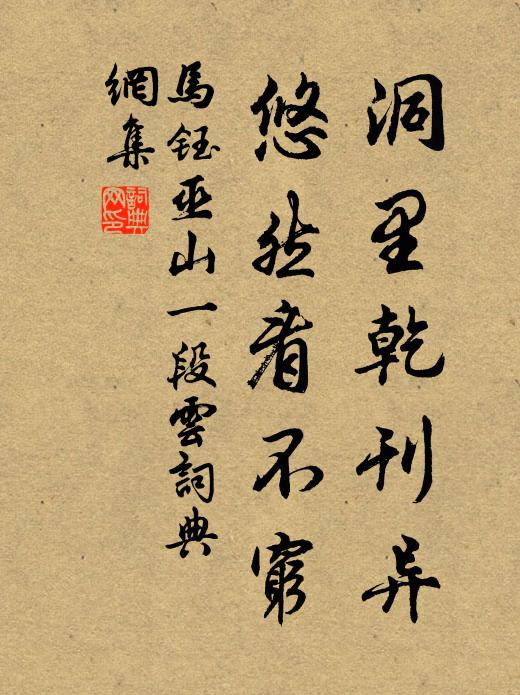 洞里乾刊异
悠然看不窮
馬鈺巫山一段雲詞典
網集
詞典
网印